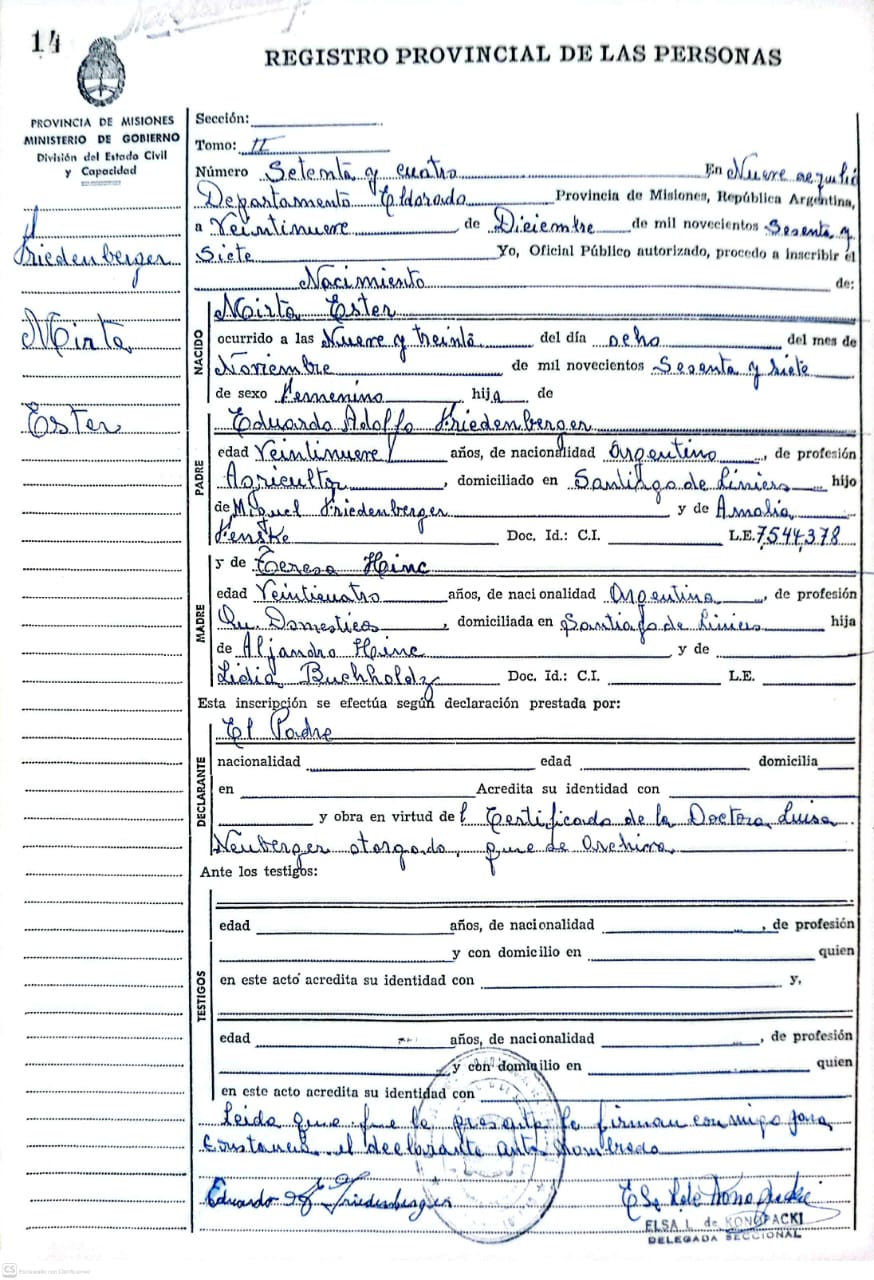 14
REGISTRO PROVINCIAL DE LAS PERSONAS
PROVINCIA DE MISIONES
MINISTERIO DE GOBIERNO
División del Estado Civil
y Capacidad
Friedenberger
Mirta
Ester
Sección:
Tomo: II
Número Setenta y cuatro En Nueve de julio
Departamento Eldorado Provincia de Misiones, República Argentina,
a Veintinueve de Diciembre de mil novecientos Sesenta y
Siete Yo, Oficial Público autorizado, procedo a inscribir el
Nacimiento de:
NACIDO
Mirta Ester
ocurrido a las Nueve y treinta del día ocho del mes de
Noviembre de mil novecientos Sesenta y siete
de sexo Femenino hija de
PADRE
Eduardo Adolfo Friedenberger
edad Veintinueve años, de nacionalidad Argentino, de profesión
Agricultor, domiciliado en Santiago de Liniers hijo
de Miguel Friedenberger y de Amalia
Doc. Id.: C.I. L.E. 7.544.378
MADRE
y de Teresa Heinc
edad Veinticuatro años, de nacionalidad Argentina, de profesión
Qu. Domesticos, domiciliada en Santiago de Liniers hija
de Aljandro Heinc y de
Lidia Buchholdz Doc. Id.: C.I. L.E.
Esta inscripción se efectúa según declaración prestada por:
DECLARANTE
El Padre
nacionalidad edad domicilia
en Acredita su identidad con
y obra en virtud del Certificado de la Doctora Luisa
Neuberger otorgado, que se Archiva
Ante los testigos:
TESTIGOS
edad años, de nacionalidad, de profesión
y con domicilio en quien
en este acto acredita su identidad con y,
edad años, de nacionalidad, de profesión
y con domicilio en quien
en este acto acredita su identidad con
Leida que fue la presente la firman conmigo para
constancia el declarante ante nombrado
Eduardo Friedenberger
ELSA L. de KONOPACKI
DELEGADA SECCIONAL
CS Escaneado con CamScanner